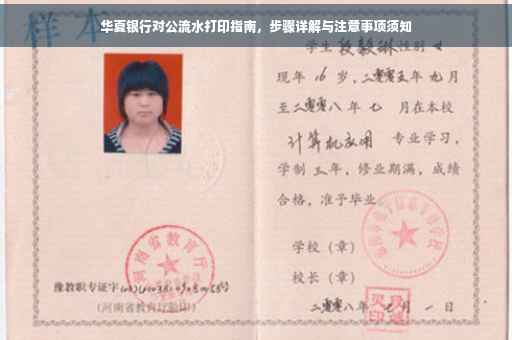 华夏银行对公流水打印指南，步骤详解与注意事项须知
样本
学生 段毅琳 性别 女
现年 16 岁，二零零五年 九月
至二零零八年 七 月在本校
计算机应用 专业学习，
学制 三年，修业期满，成绩
合格，准予毕业
学校（章）
校长（章）
二零零八年 七月 一日
河南省教育厅
豫教职专证字
（河南省教育厅验印）